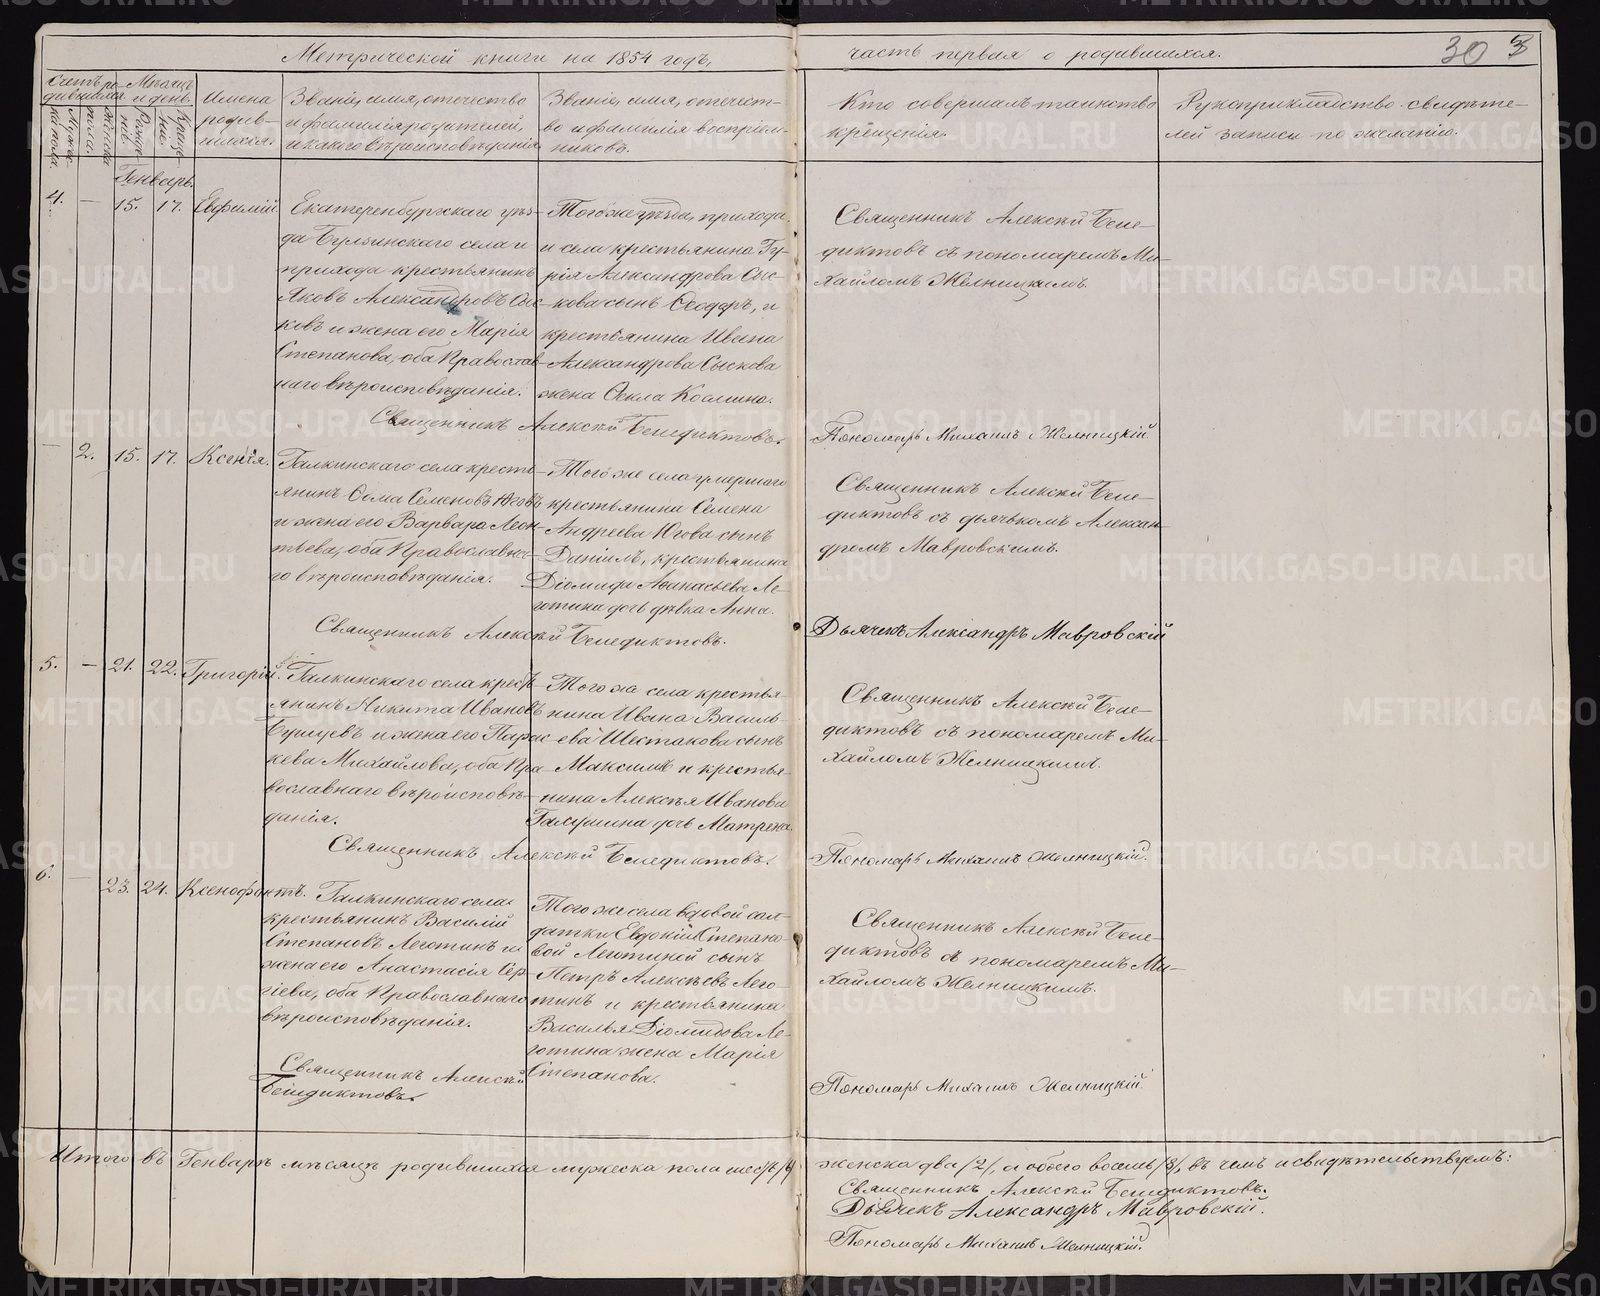 Метрической книги на 1854 годъ, часть первая о родившихся. 30 3
Счетъ ро-
дившихся.
Мужес-
ка пола.
Женска
пола.
Мѣсяцъ
и день.
Рожде-
нія.
Креще-
нія.
Имена
родив-
шихся.
Званіе, имя, отечество
и фамилія родителей,
и какого вѣроисповѣданія
Званіе, имя, отечест-
во и фамилія воспріем-
никовъ.
Кто совершалъ таинство
крещенія.
Рукоприкладство свидѣте-
лей записи по желанію.
Генварь.
4. — 15. 17. Евфимій
Екатеренбургскаго уѣз-
да Булзинскаго села и
прихода крестьянинъ
Яковъ Александровъ Сыс-
ковъ и жена его Марія
Степанова, оба Православ-
наго вѣроисповѣданія.
Того же уѣзда, прихода
и села крестьянина Гу-
рія Александрова Сыс-
кова сынъ Ѳеодоръ, и
крестьянина Ивана
Александрова Сыскова
жена Ѳекла Космина.
Священникъ Алексѣй Бенедиктовъ.
Священникъ Алексѣй Бене-
диктовъ съ пономаремъ Ми-
хайломъ Желницкимъ.
Пономарь Михаилъ Желницкій.
— 2. 15. 17. Ксенія.
Галкинскаго села кресть-
янинъ Ѳома Семеновъ Юговъ
и жена его Варвара Леон-
тьева, оба Православна-
го вѣроисповѣданія.
Того же села умершаго
крестьянина Семена
Андреева Югова сынъ
Даніилъ, крестьянина
Діомида Аѳанасьева Ле-
готина дочь дѣвка Анна.
Священникъ Алексѣй Бенедиктовъ.
Священникъ Алексѣй Бене-
диктовъ съ дьячькомъ Алексан-
дромъ Мавровскимъ.
Дьячекъ Александръ Мавровскій
5. — 21. 22. Григорій.
Галкинскаго села кресть-
янинъ Никита Ивановъ
и жена его Парас-
кева Михайлова, оба Пра-
вославнаго вѣроисповѣ-
данія.
Того же села крестья-
нина Ивана Василь-
ева Шестакова сынъ
Максимъ и крестья-
нина Алексѣя Иванова
Галушина дочь Матрена.
Священникъ Алексѣй Бенедиктовъ.
Священникъ Алексѣй Бене-
диктовъ съ пономаремъ Ми-
хайломъ Желницкимъ.
Пономарь Михаилъ Желницкій.
6. — 23. 24. Ксенофонтъ.
Галкинскаго села
крестьянинъ Василій
Степановъ Леготинъ и
жена его Анастасія Сер-
гіева, оба Православнаго
вѣроисповѣданія.
Того же села вдовой сол-
датки Евдокіи Степано-
вой Леготиной сынъ
Петръ Алексѣевъ Лего-
тинъ и крестьянина
Василья Діомидова Ле-
готина жена Марія
Степанова.
Священникъ Алексѣй
Бенедиктовъ.
Священникъ Алексѣй Бене-
диктовъ съ пономаремъ Ми-
хайломъ Желницкимъ.
Пономарь Михаилъ Желницкій
Итого въ Генварѣ мѣсяцѣ родившихся мужеска пола шесть /6/ женска два /2/, а обоего восемь /8/, въ чемъ и свидѣтельствуемъ:
Священникъ Алексѣй Бенедиктовъ.
Дьячекъ Александръ Мавровскій.
Пономарь Михаилъ Желницкій.
METRIKI.GASO-URAL.RU